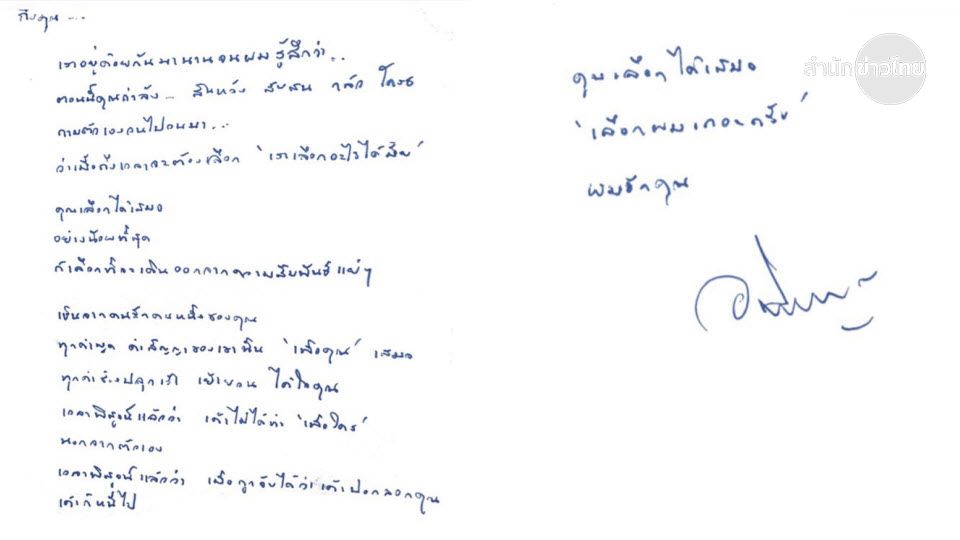 ถึงคุณ...
เราอยู่ด้วยกันมานานจนผมรู้สึกว่า..
ตอนนี้คุณกำลัง... สิ้นหวัง สับสน กลัว โกรธ
ถามตัวเองวนไปวนมา...
ว่าเมื่อถึงเวลาจะต้องเลือก 'เราเลือกอะไรได้มั้ย'
คุณเลือกได้เสมอ
อย่างน้อยที่สุด
ก็เลือกที่จะเดินออกจากความสัมพันธ์แย่ๆ
เช่นจากคนรักคนหนึ่งของคุณ
ทุกคำพูด คำสัญญาของเขานั้น 'เพื่อคุณ' เสมอ
ทุกคำช่างปลุกเร้า เย้ายวน ได้ใจคุณ
เวลาพิสูจน์แล้วว่า เค้าไม่ได้ทำ 'เพื่อใคร'
นอกจากตัวเอง
เวลาพิสูจน์แล้วว่า เมื่อถูกจับได้ว่าเค้าปอกลอกคุณ
เค้าก็หนีไป
คุณเลือกได้เสมอ
'เลือกผมเถอะครับ'
ผมรักคุณ
สำนักข่าวไทย